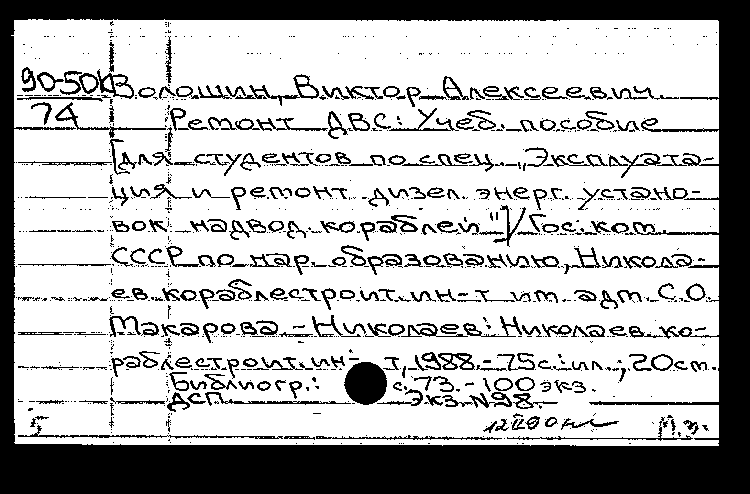 90-50к Волошин, Виктор Алексеевич.
74 Ремонт ДВС: Учеб. пособие
[для студентов по спец. „Эксплуата-
ция и ремонт дизел. энерг. устано-
вок надвод. кораблей"]/Гос. ком.
СССР по нар. образованию, Никола-
ев. кораблестроит. ин-т им. адм. С.О.
Макарова. - Николаев: Николаев. ко-
раблестроит. ин-т, 1988. - 75 с.: ил.; 20 см.
Библиогр.: с. 73. - 100 экз.
ДСП. Экз. №98.
5 М.З.